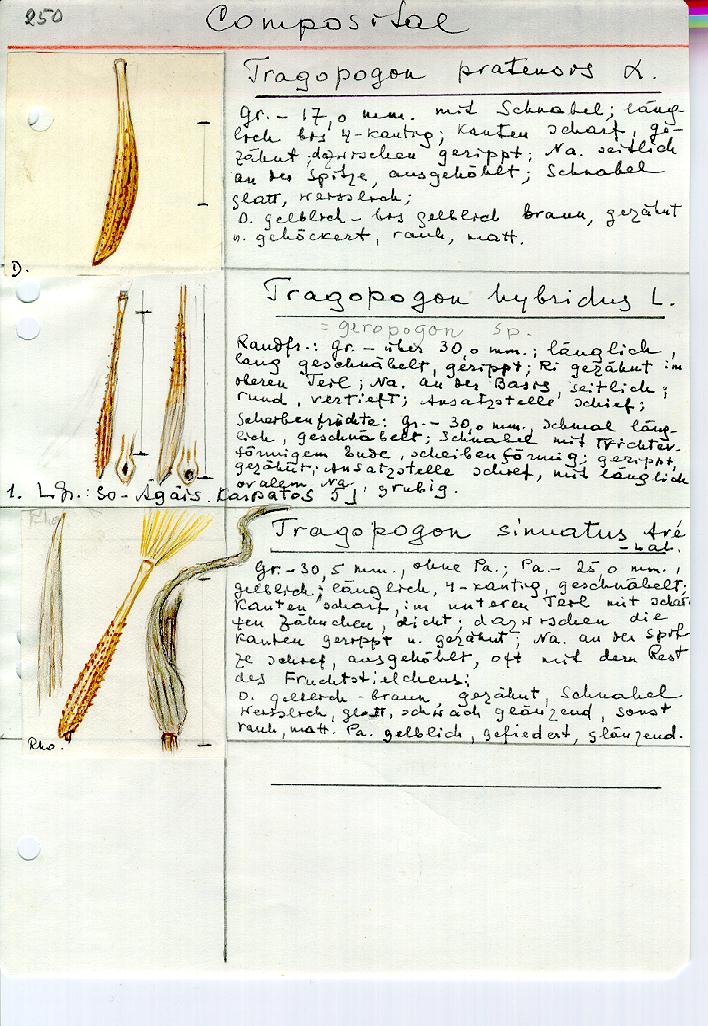 250
Compositae
Tragopogon pratensis L.
Gr. - 17,0 mm. mit Schnabel; läng-
lich bis 4-kantig; Kanten scharf, ge-
zähnt, dazwischen gerippt; Na. seitlich
an der Spitze, ausgehöhlt; Schnabel
glatt, weisslich;
D. gelblich - bis gelblich braun, gezähnt
u. gehöckert, rauh, matt.
D.
Tragopogon hybridus L.
= geropogon sp.
Randfr.: gr. - über 30,0 mm.; länglich,
lang geschnäbelt, gerippt; Ri gezähnt im
oberen Teil; Na. an der Basis, seitlich;
rund, vertieft; Ansatzstelle schief;
Scheibenfrüchte: gr. - 30,0 mm, schmal läng-
lich, geschnäbelt; Schnabel mit trichter-
förmigem Ende, scheibenförmig; gerippt,
gezähnt; Ansatzstelle schief, mit länglich
ovalem Na., grubig.
1. Lgr.: So-Ägäis. Karpatos 5j
Tragopogon sinuatus Avé
- Lal.
Gr. - 30,5 mm., ohne Pa.; Pa. - 25,0 mm.,
gelblich; länglich, 4-kantig, geschnäbelt;
Kanten scharf, im unteren Teil mit schar-
fen Zähnchen, dicht; dazwischen die
Kanten gerippt u. gezähnt; Na. an der Spit-
ze schief, ausgehöhlt, oft mit dem Rest
des Fruchtstielchens;
D. gelblich-braun gezähnt, Schnabel
weisslich, glatt, schwach glänzend, sonst
rauh, matt. Pa. gelblich, gefiedert, glänzend.
Rho.
Rho.